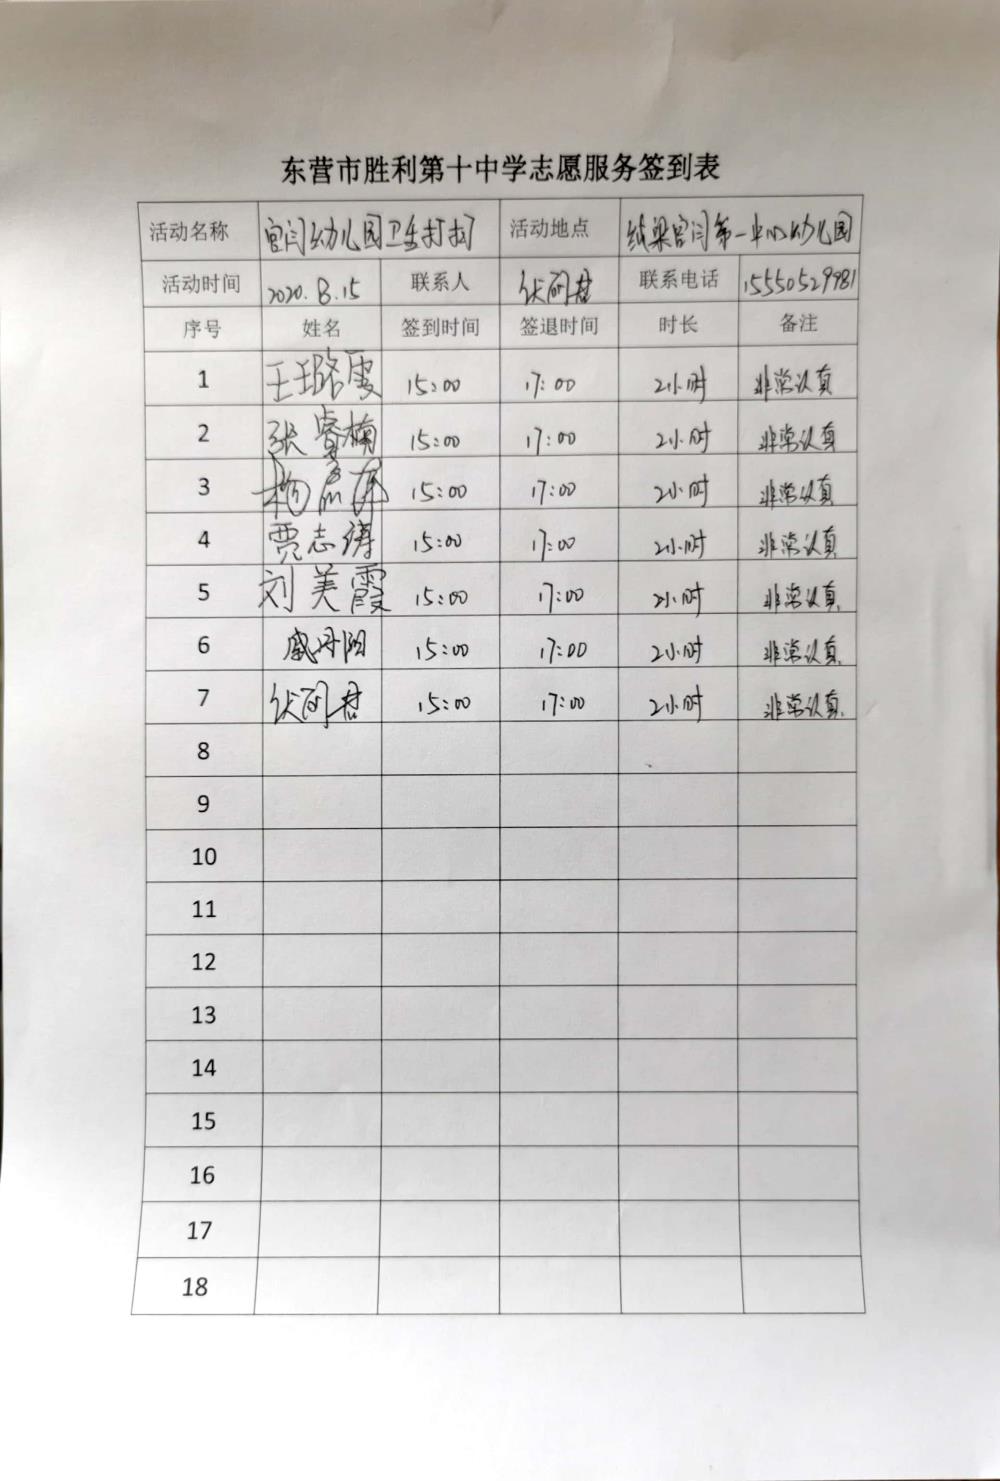 东营市胜利第十中学志愿服务签到表
活动名称 官闫幼儿园卫生打扫 活动地点 纯梁官闫第一中心幼儿园
活动时间 2020.8.15 联系人 联系电话 15550529981
序号 姓名 签到时间 签退时间 时长 备注
1 王璐雯 15:00 17:00 2小时 非常认真
2 张睿楠 15:00 17:00 2小时 非常认真
3 杨 15:00 17:00 2小时 非常认真
4 贾志涛 15:00 17:00 2小时 非常认真
5 刘美霞 15:00 17:00 2小时 非常认真.
6 戚丹阳 15:00 17:00 2小时 非常认真.
7 15:00 17:00 2小时 非常认真.
8
9
10
11
12
13
14
15
16
17
18